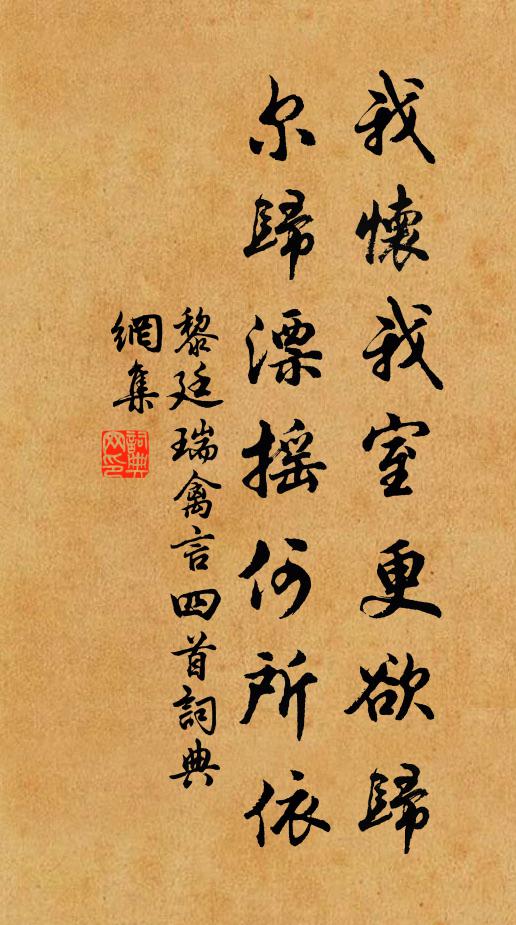 我懷我室更欲歸
尔歸漂摇何所依
黎廷瑞禽言四首詞典
網集
詞典
网印